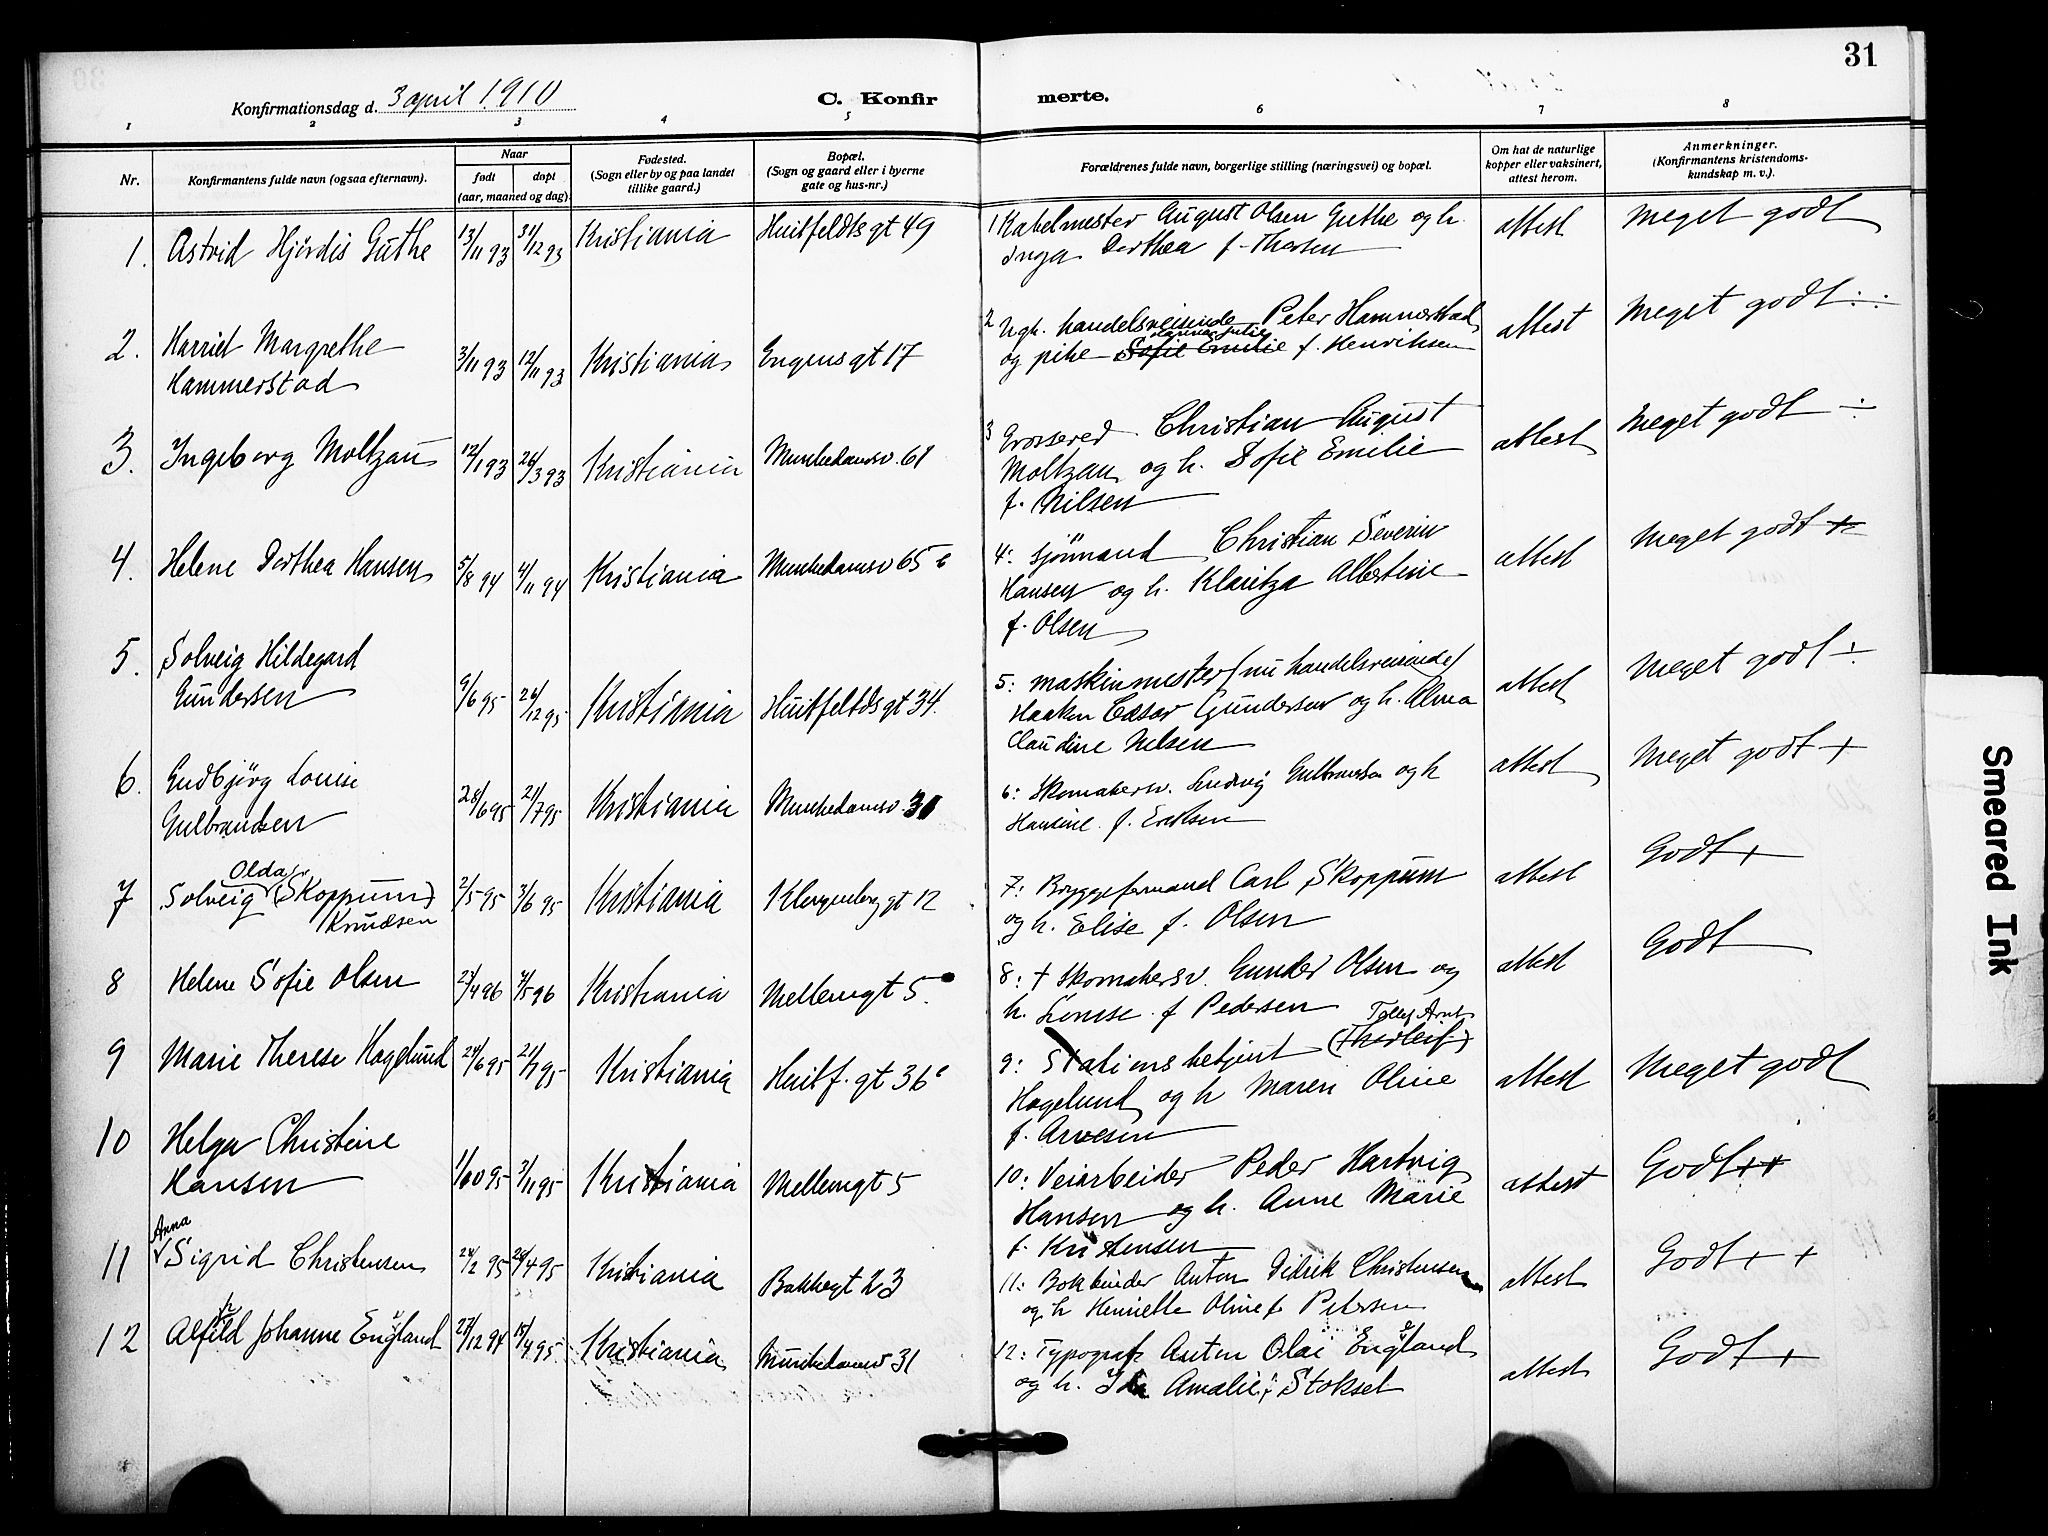 31
Konfirmationsdag d. 3 april 1910
C. Konfir merte.
1 2 3 4 5 6 7 8
Nr.
Konfirmantens fulde navn (ogsaa efternavn).
Naar
født døpt
(aar, maaned og dag).
Fødested.
(Sogn eller by og paa landet
tillike gaard.)
Bopæl.
(Sogn og gaard eller i byerne
gate og hus-nr.)
Forældrenes fulde navn, borgerlige stilling (næringsvei) og bopæl.
Om hat de naturlige
kopper eller vaksinert,
attest herom.
Anmerkninger.
(Konfirmantens kristendoms-
kundskap m. v.).
1. Astrid Hjørdis Guthe 13/11 93 31/12 93 Kristiania Huitfeldts gt 49 1 Kabelmester August Olsen Guthe og h. attest Meget godt
Inga Dorthea f. Thorsen
2. Harriet Margrethe 3/11 93 12/11 93 Kristiania Engens gt 17 2 Ugh. handelsreisende Peter Hammerstad attest Meget godt
Hammerstad og pike Sofie Emilie f. Henriksen
3. Ingeborg Moltzau 12/1 93 26/3 93 Kristiania Munkedamsv. 61 3 Grosserer Christian August attest Meget godt ÷
Moltzau og h. Sofie Emilie
f. Nilsen
4. Helene Dorthea Hansen 5/8 94 4/11 94 Kristiania Munkedamsv 65 c 4: Sjømand Christian Severin attest Meget godt
Hansen og h. Klaritza Albertine
f. Olsen
5. Solveig Hildegard 9/6 95 26/12 95 Kristiania Huitfeltds gt 34. 5: Maskinmester (nu handelsreisende) attest Meget godt ÷
Gundersen Haakon Cæsar Gundersen og h. Alma
Claudine Nilsen
6. Gudbjörg Louise 28/6 95 21/7 95 Kristiania Munkedamsv 31 6: Skomakersv. Ludvig Gulbrandsen og h attest Meget godt +
Gulbrandsen Hansine f. Eriksen
7 Solveig Olda (Skoppum) 2/5 95 3/6 95 Kristiania Klingenberg gt 12 7: Bryggeformand Carl Skoppum attest Godt +
Knudsen og h. Elise f. Olsen
8 Helene Sofie Olsen 4/5 96 Kristiania Mellemgt 5. 8: + Skomakersv. Gunder Olsen og attest Godt
h. Lovise f Pedersen
9 Marie Therese Hagelund 24/6 95 21/7 95 Kristiania Huitf. gt 36 c 9: Stationsbetjent (Thorleif) Tollef Arnt attest Meget godt
Hagelund og h Maren Oline
f. Arvesen
10 Helga Christine 3/11 95 Kristiania Mellemgt 5 10: Veiarbeider Peder Hartvig attest Godt ++
Hansen Hansen og h. Anne Marie
f. Kristensen
11 Anna Sigrid Christensen 24/2 95 Kristiania Bakkegt 23 11: Bokbinder Anton Didrik Christensen attest Godt + +
og h Henriette Oline f. Petersen
12 Alfild Johanne England 27/12 94 15/4 95 Kristiania Munkedamsv 31 12: Typograf Anton Olai England attest Godt +
og h. Ida Amalie f. Stokset
Smeared Ink